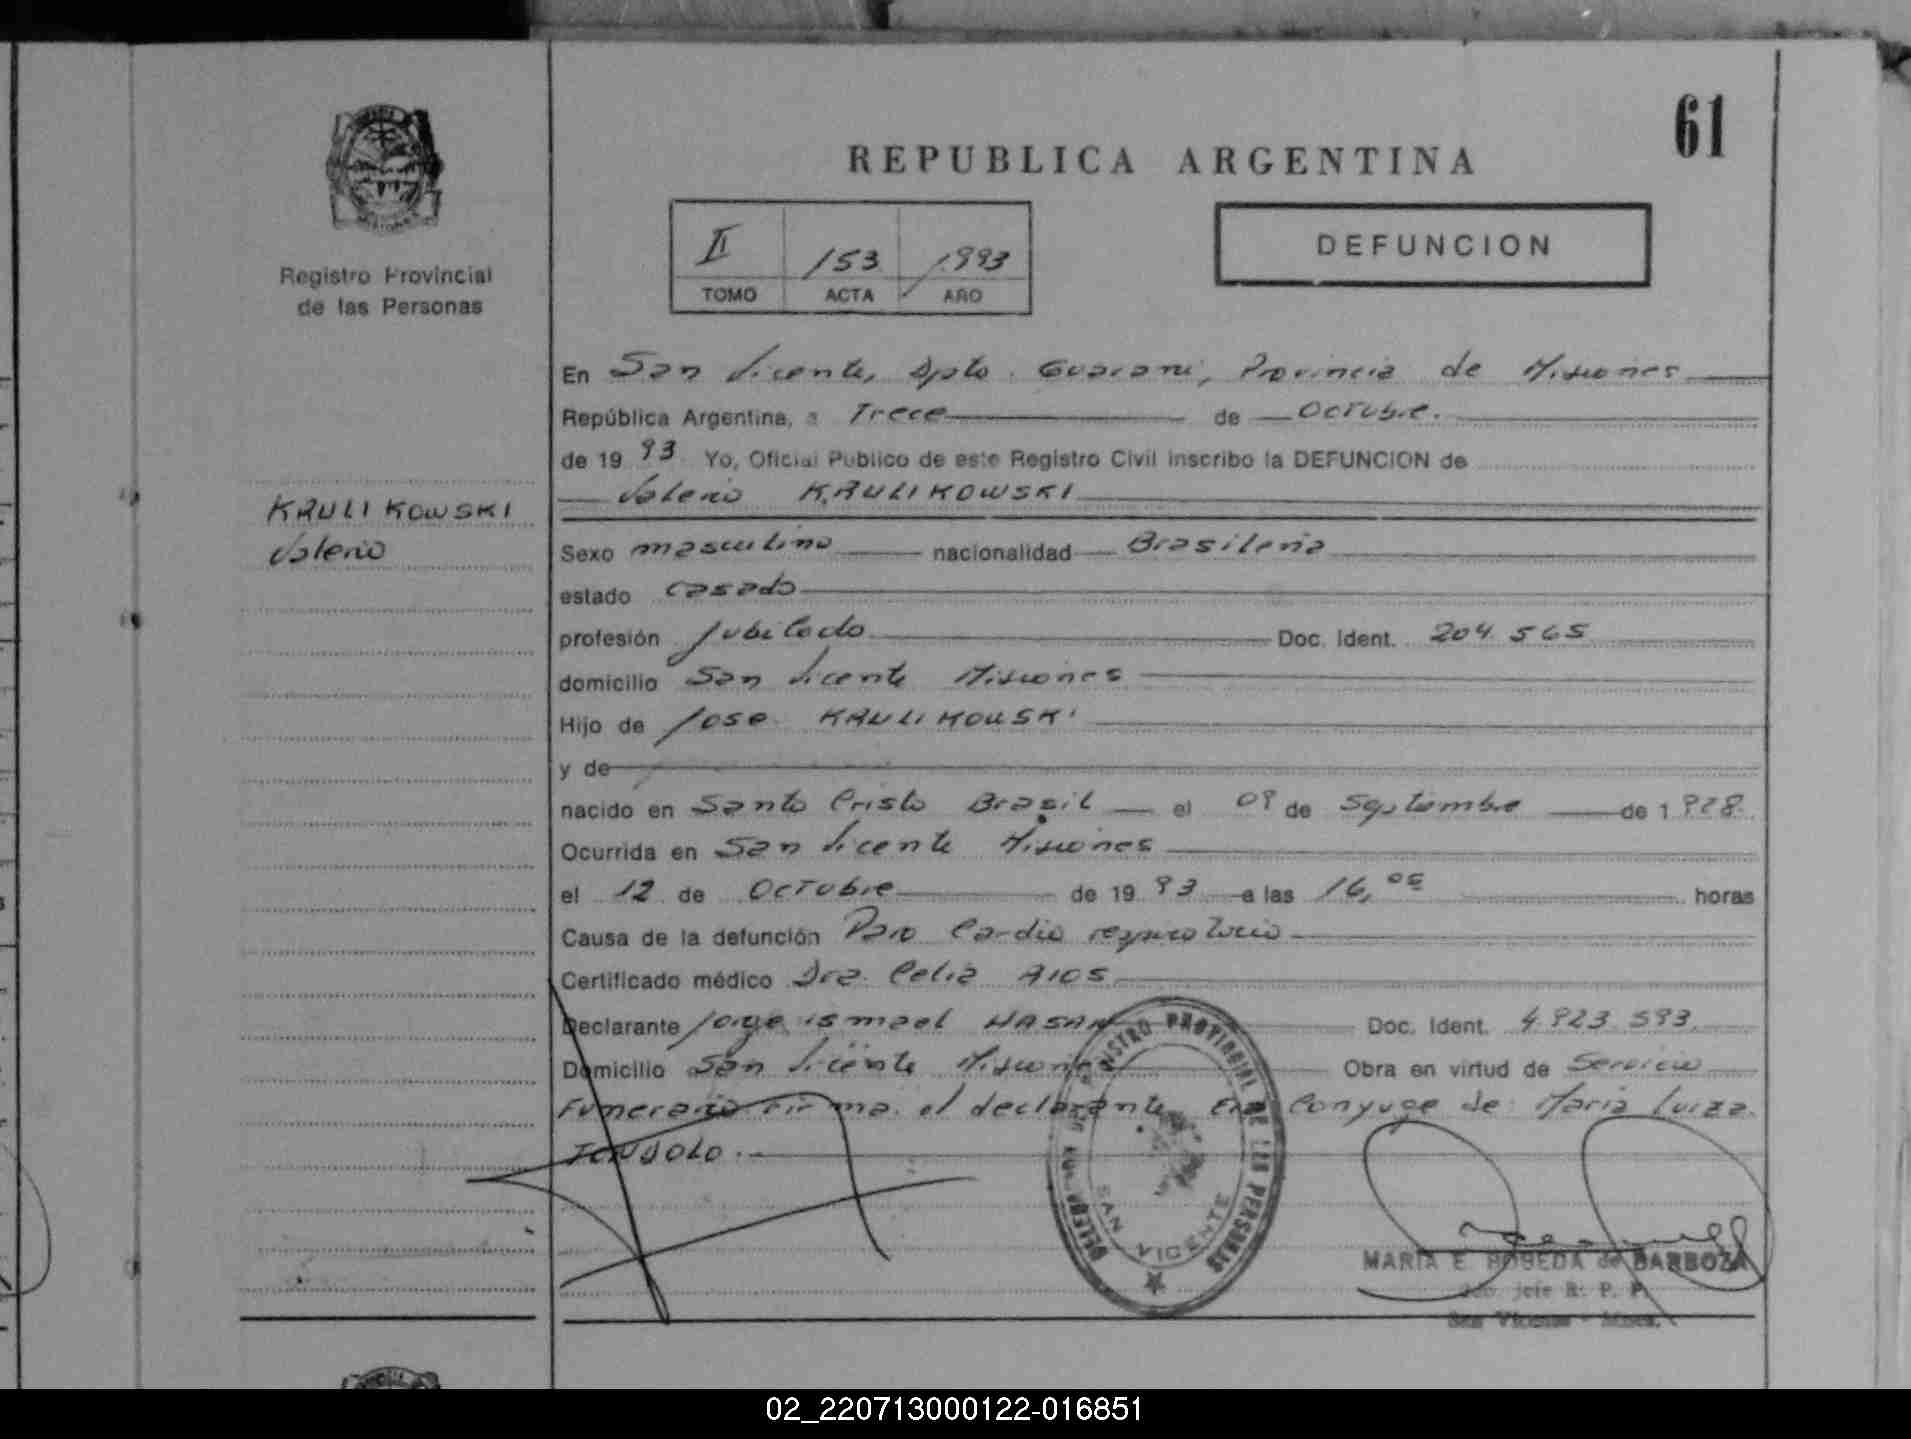 61
REPUBLICA ARGENTINA
II 153 1993
TOMO ACTA AÑO
DEFUNCION
Registro Provincial
de las Personas
KRULIKOWSKI
Valerio
En San Vicente, Dpto. Guarani, Provincia de Misiones
República Argentina, a Trece de Octubre.
de 19 93 Yo, Oficial Público de este Registro Civil inscribo la DEFUNCION de
Valerio KRULIKOWSKI
Sexo masculino nacionalidad Brasileña
estado casado
profesión Jubilado Doc. Ident. 204 565
domicilio San Vicente Misiones
Hijo de Jose KRULIKOWSKI
y de
nacido en Santo Cristo Brasil el 09 de Septiembre de 1 928.
Ocurrida en San Vicente Misiones
el 12 de Octubre de 19 93 a las 16,05 horas
Causa de la defunción Paro Cardio respiratorio
Certificado médico Dra. Celia RIOS
Declarante Jorge ismael HASAN Doc. Ident. 4 923 593
Domicilio San Vicente Misiones Obra en virtud de Servicio
Funerario firma el declarante Era Conyuge de: Maria Luiza
REGISTRO PROVINCIAL DE LAS PERSONAS
SAN VICENTE
MARIA E. de BARBOZA
Jefe R. P. P.
San Vicente - Mnes.
02_220713000122-016851